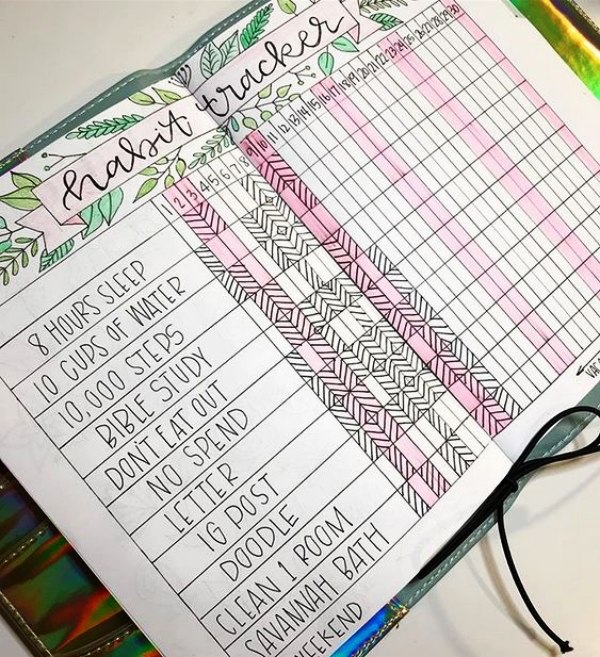 habit tracker
1 2 3 4 5 6 7 8 9 10 11 12 13 14 15 16 17 18 19 20 21 22 23 24 25 26 27 28 29 30
8 HOURS SLEEP
10 CUPS OF WATER
10,000 STEPS
BIBLE STUDY
DON'T EAT OUT
NO SPEND
LETTER
IG POST
DOODLE
CLEAN 1 ROOM
SAVANNAH BATH
WEEKEND